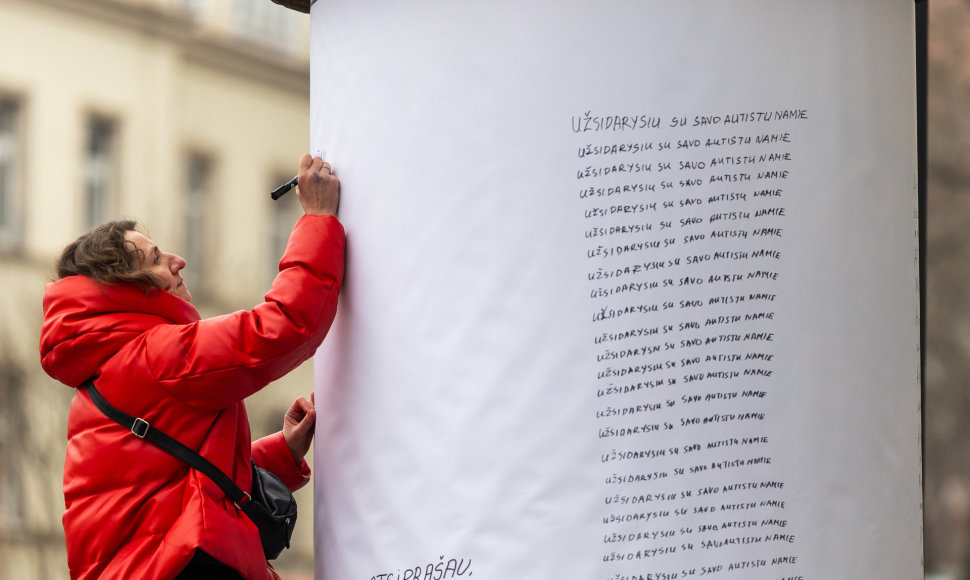 UŽSIDARYSIU SU SAVO AUTISTU NAMIE
UŽSIDARYSIU SU SAVO AUTISTU NAMIE
UŽSIDARYSIU SU SAVO AUTISTU NAMIE
UŽSIDARYSIU SU SAVO AUTISTU NAMIE
UŽSIDARYSIU SU SAVO AUTISTU NAMIE
UŽSIDARYSIU SU SAVO AUTISTU NAMIE
UŽSIDARYSIU SU SAVO AUTISTU NAMIE
UŽSIDARYSIU SU SAVO AUTISTU NAMIE
UŽSIDARYSIU SU SAVO AUTISTU NAMIE
UŽSIDARYSIU SU SAVO AUTISTU NAMIE
UŽSIDARYSIU SU SAVO AUTISTU NAMIE
UŽSIDARYSIU SU SAVO AUTISTU NAMIE
UŽSIDARYSIU SU SAVO AUTISTU NAMIE
UŽSIDARYSIU SU SAVO AUTISTU NAMIE
UŽSIDARYSIU SU SAVO AUTISTU NAMIE
UŽSIDARYSIU SU SAVO AUTISTU NAMIE
UŽSIDARYSIU SU SAVO AUTISTU NAMIE
UŽSIDARYSIU SU SAVO AUTISTU NAMIE
UŽSIDARYSIU SU SAVO AUTISTU NAMIE
UŽSIDARYSIU SU SAVO AUTISTU NAMIE
UŽSIDARYSIU SU SAVO AUTISTU NAMIE
ATSIPRAŠAU,